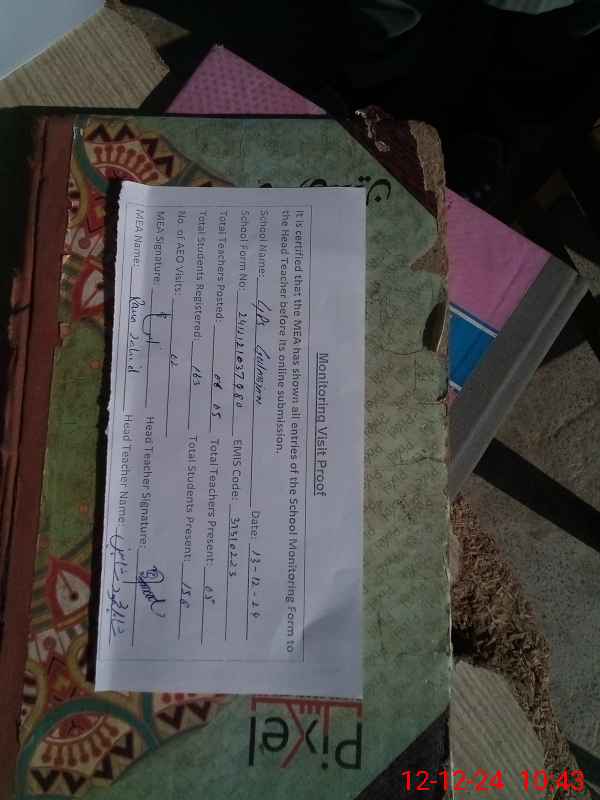 Monitoring Visit Proof
It is certified that the MEA has shown all entries of the School Monitoring Form to
the Head Teacher before its online submission.
School Name: GPS Date: 13-12-24
School Form No: 2412121037980 EMIS Code: 31310223
Total Teachers Posted: 05 Total Teachers Present: 05
Total Students Registered: 163 Total Students Present: 158
No. of AEO Visits: 02
MEA Signature: Head Teacher Signature:
MEA Name: Head Teacher Name:
Pixel
12-12-24 10:43